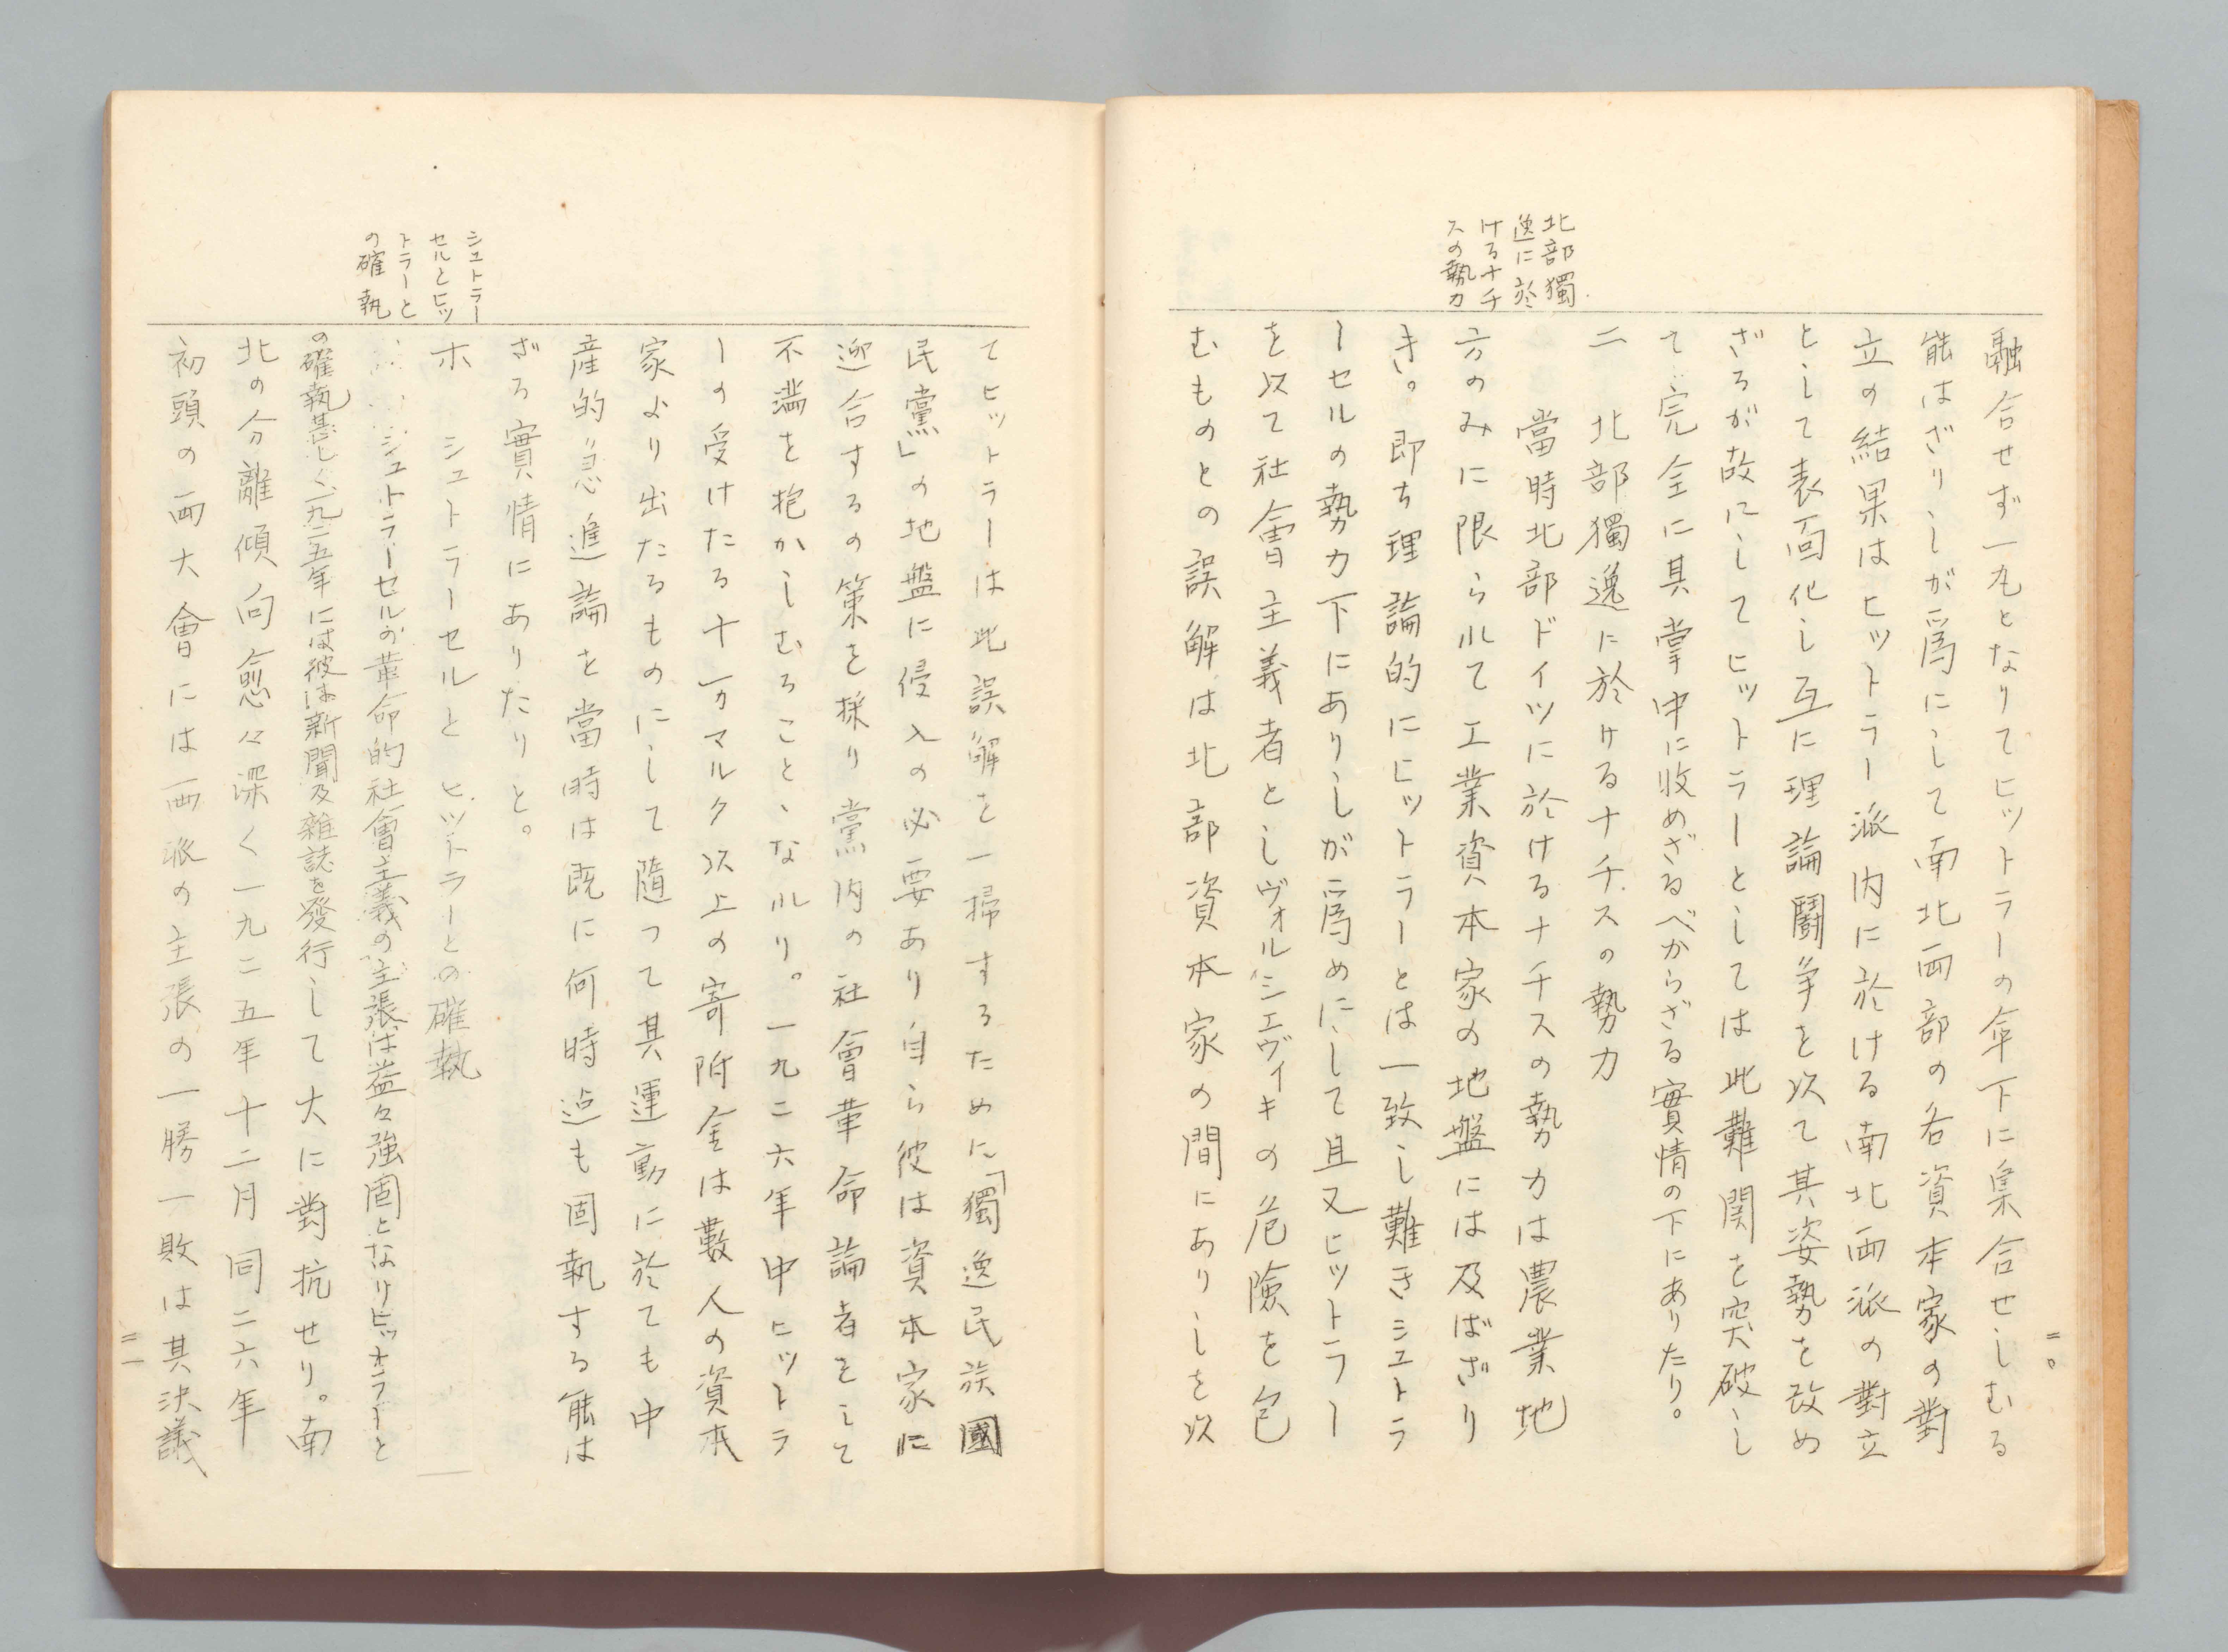 北部獨
逸に於
けるナチ
スの勢力
融合せず一丸となりてヒットラーの傘下に集合せしむる
能はざりしが為にして南北両部の各資本家の對
立の結果はヒットラー派内に於ける南北両派の對立
として表面化し互に理論闘争を以て其姿勢を改め
ざるが故にしてヒットラーとしては此難関を突破し
て完全に其掌中に收めざるべからざる實情の下にありたり。
ニ 北部獨逸に於けるナチスの勢力
當時北部ドイツに於けるナチスの勢力は農業地
方のみに限られて工業資本家の地盤には及ばざり
き。即ち理論的にヒットラーとは一致し難きシュトラ
ーセルの勢力下にありしが為めにして且又ヒットラー
を以て社會主義者としヴォルシエヴィキの危険を包
むものとの誤解は北部資本家の間にありしを以
二〇
シュトラー
セルとヒッ
トラーと
の確執
てヒットラーは此誤解を一掃するために「獨逸民族國
民黨」の地盤に侵入の必要あり自ら彼は資本家に
迎合するの策を採り黨内の社會革命論者をして
不満を抱かしむること、なれり。一九二六年中ヒットラ
ーの受けたる十万マルク以上の寄附金は数人の資本
家より出たるものにして随って其運動に於ても中
産的急進論を當時は既に何時迄も固執する能は
ざる實情にありたりと。
ホ シュトラーセルとヒットラーとの確執
シュトラーセルの革命的社會主義の主張は益々強固となりヒットラーと
の確執甚しく一九二五年には彼は新聞及雑誌を發行して大に對抗せり。南
北の分離傾向愈々深く一九二五年十二月同二六年
初頭の両大會には両派の主張の一勝一敗は其決議
二一